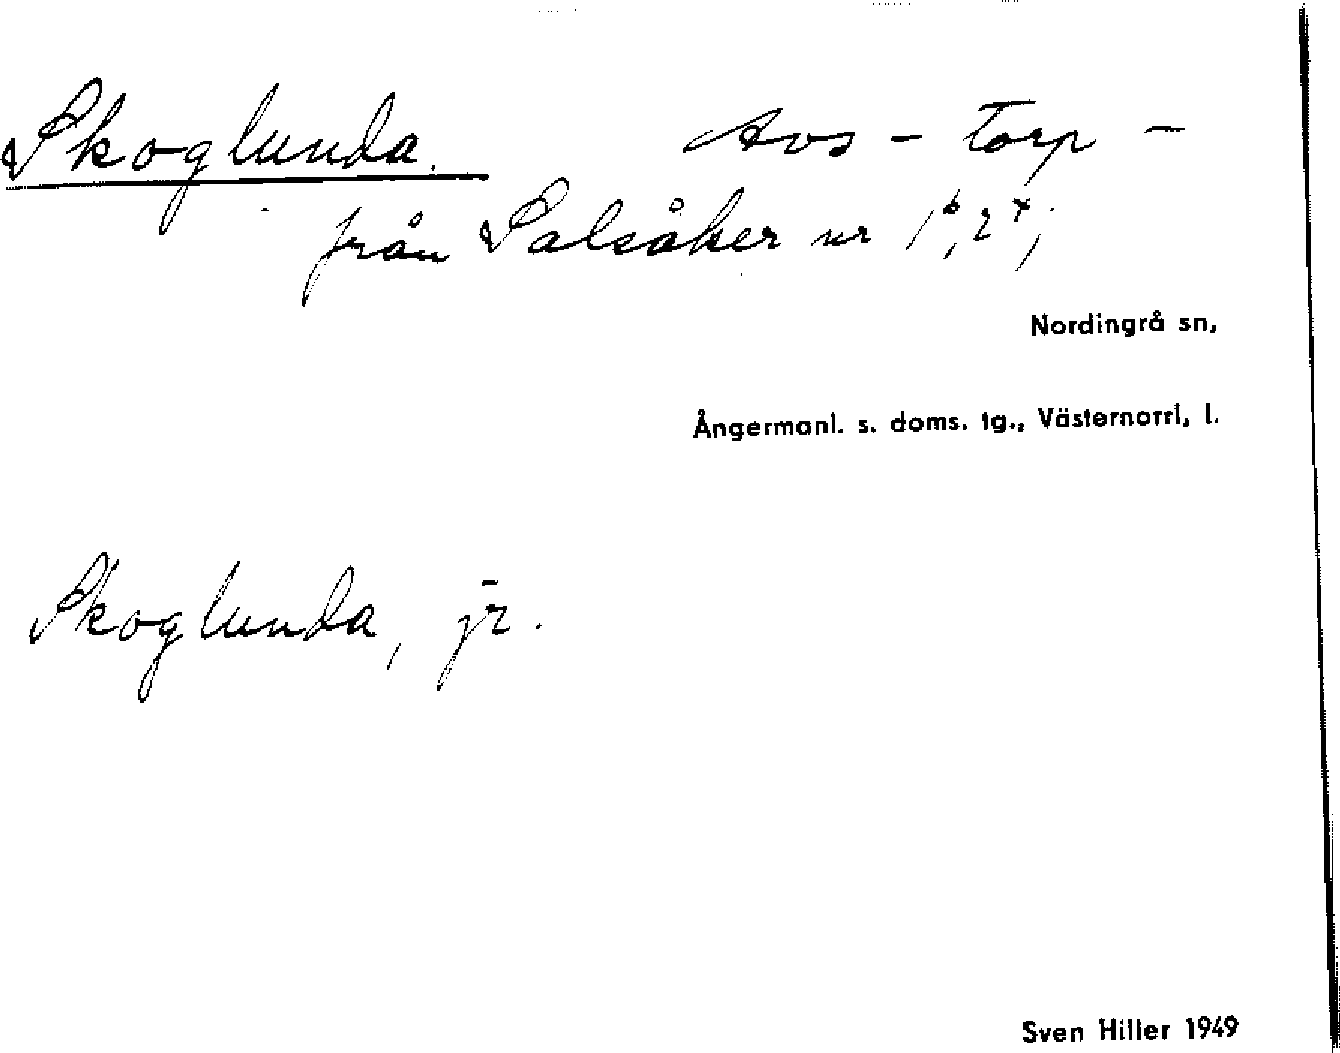 Skoglunda. Avs - torp -
från Salsåker nr 1⁶, 2ˣ;
Nordingrå sn,
Ångermanl. s. doms. tg., Västernorrl, l.
Skoglunda, jr.
Sven Hiller 1949